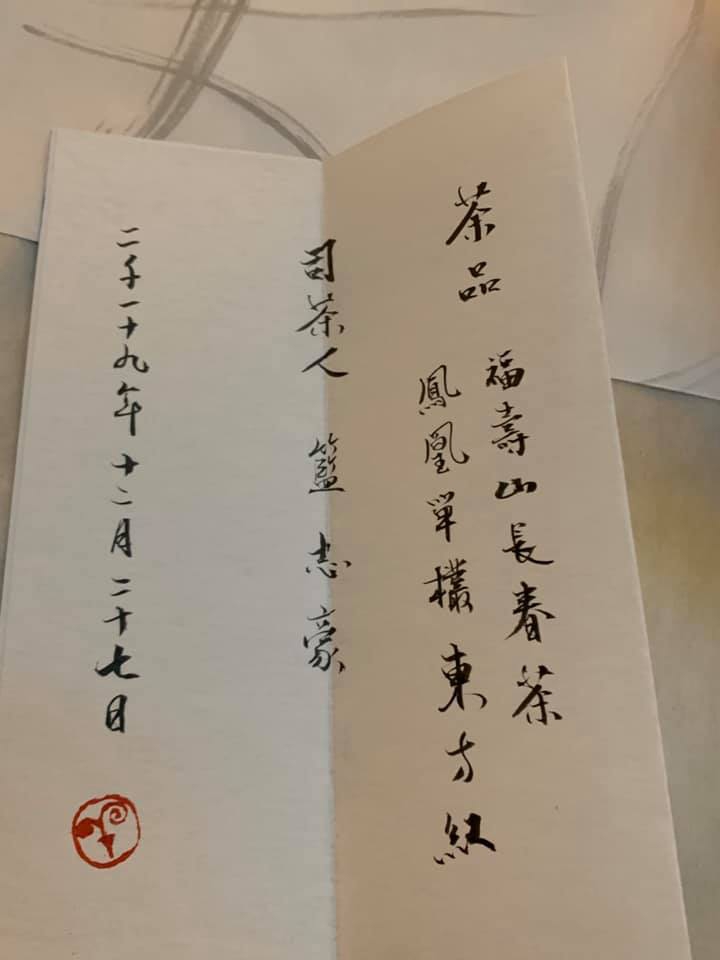 茶品
福壽山長春茶
鳳凰單欉東方紅
司茶人 籃志豪
二千一十九年十二月二十七日